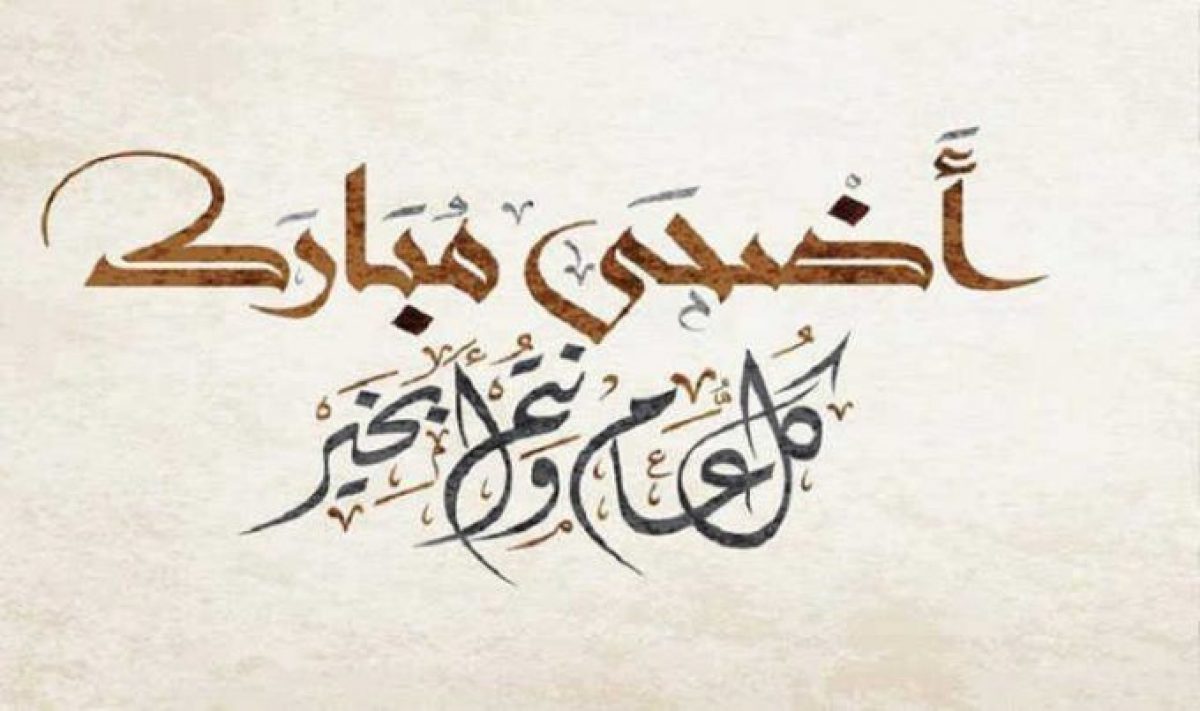 أَضحَى مُبَارَك
كُل عَام وَأنتُم بِخَير